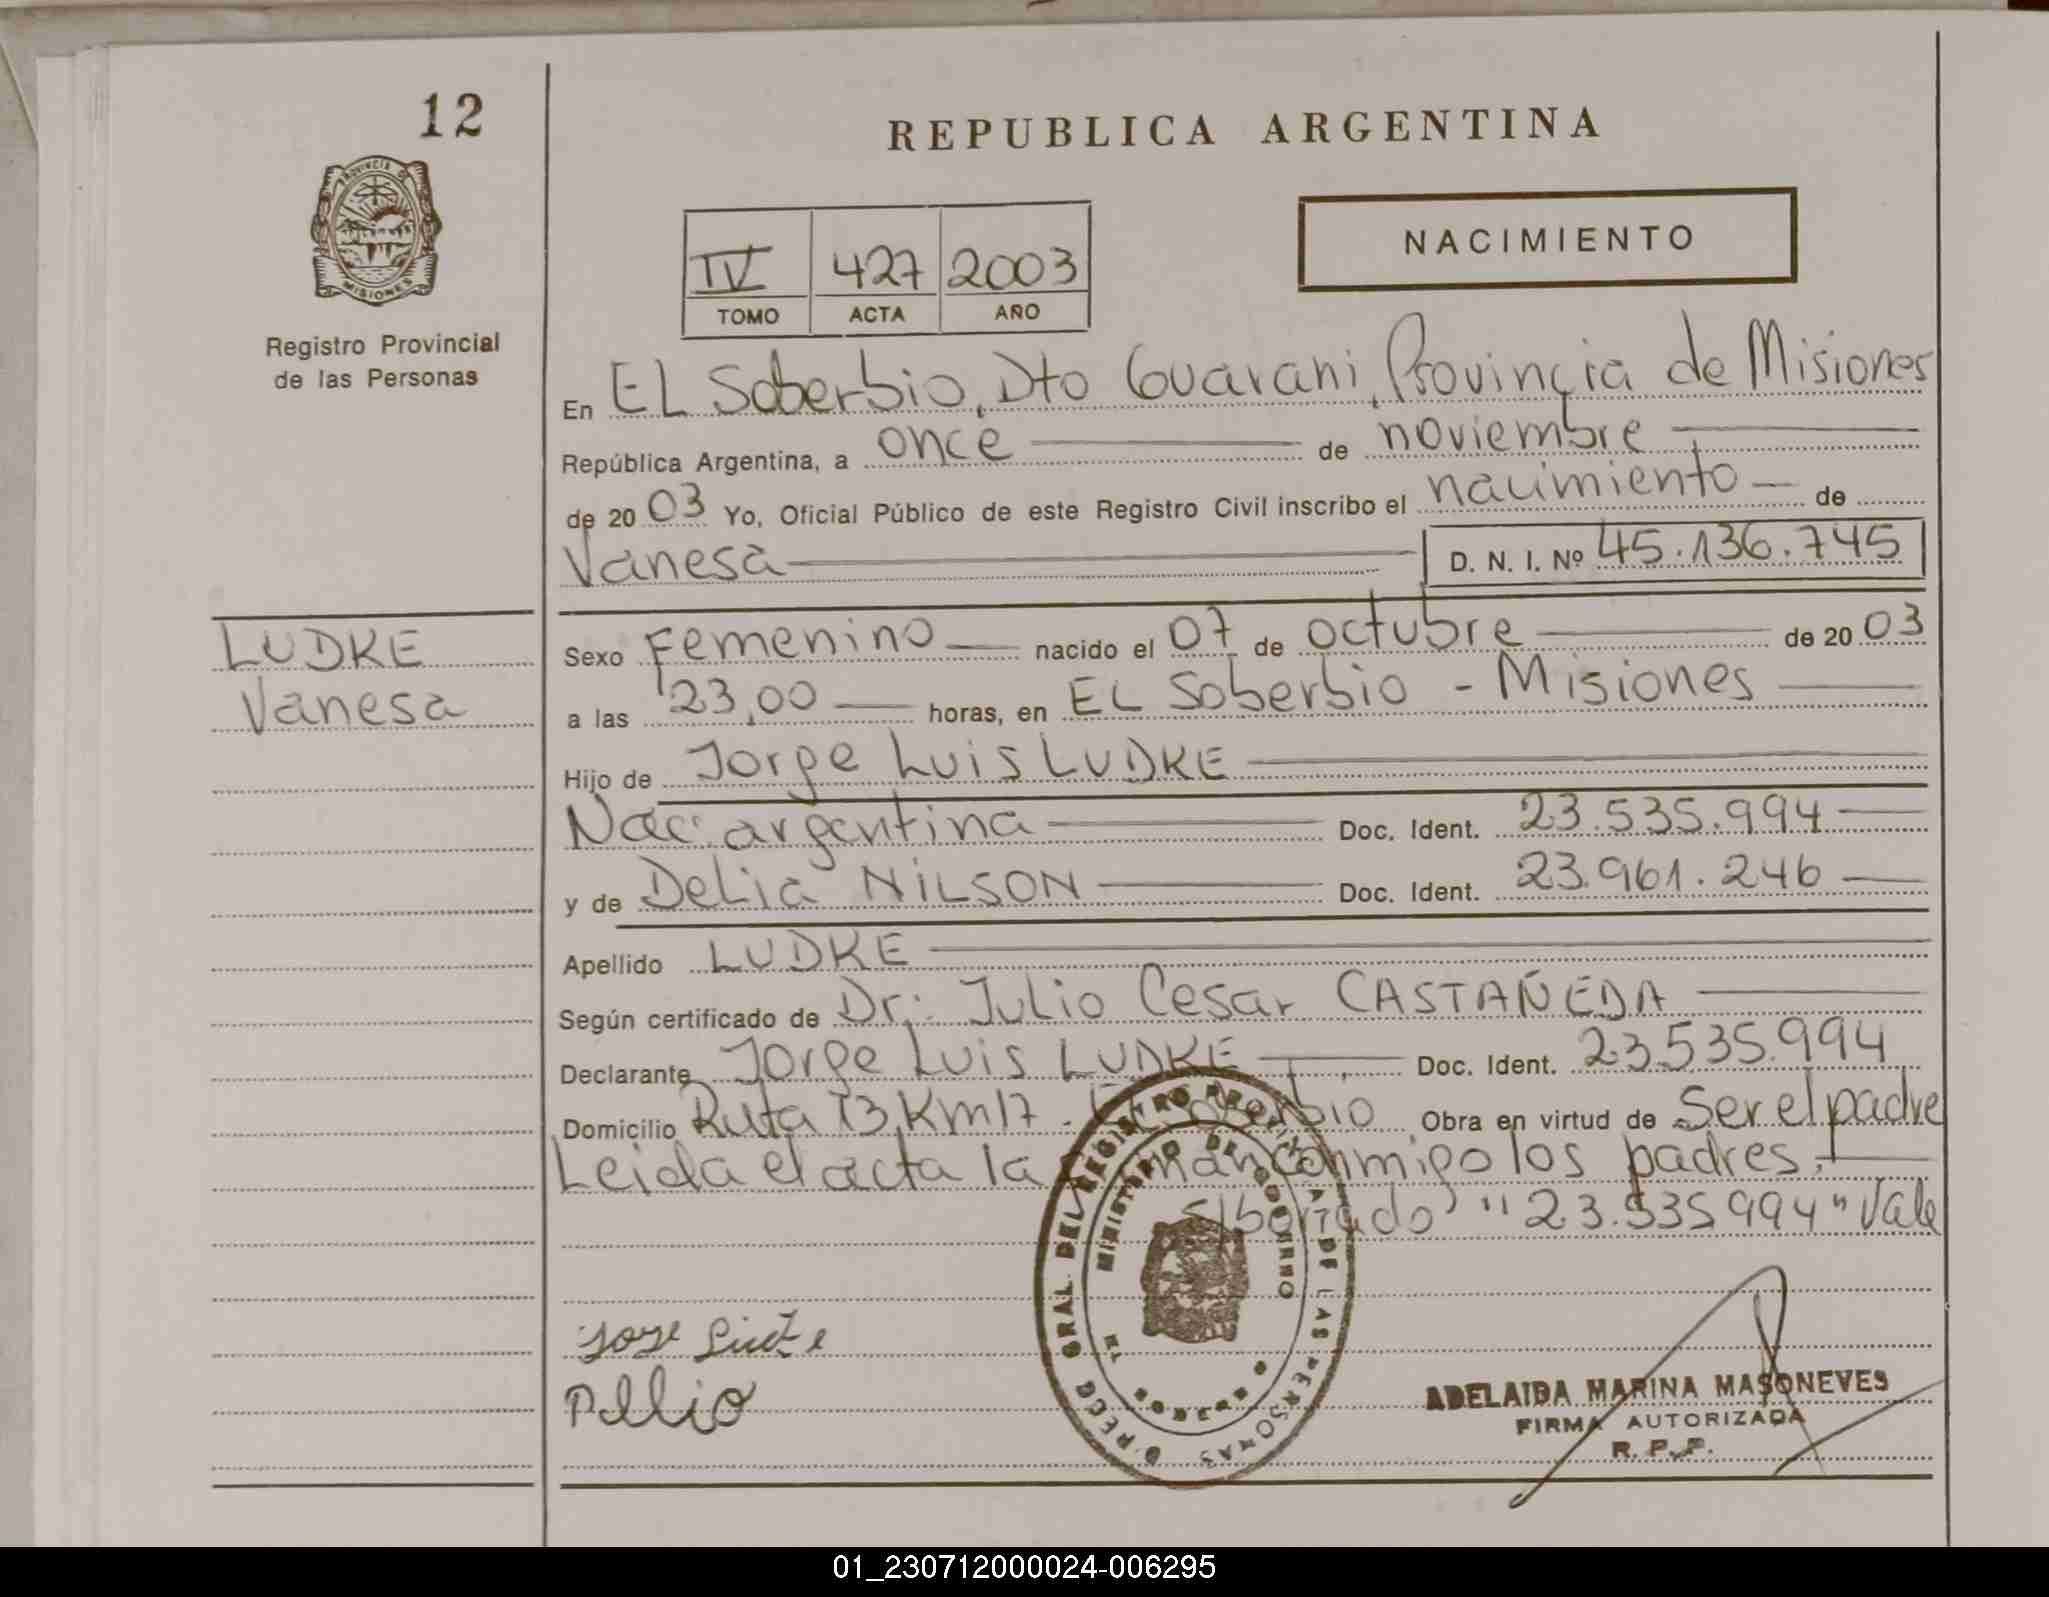 12
PROVINCIA DE
MISIONES
Registro Provincial
de las Personas
REPUBLICA ARGENTINA
NACIMIENTO
IV 427 2003
TOMO ACTA AÑO
En EL Soberbio, Dto Guarani, Provincia de Misiones
República Argentina, a once de noviembre
de 2003 Yo, Oficial Público de este Registro Civil inscribo el nacimiento de
Vanesa D. N. I. Nº 45.136.745
LUDKE
Vanesa
Sexo Femenino nacido el 07 de octubre de 2003
a las 23,00 horas, en EL Soberbio - Misiones
Hijo de Jorge Luis LUDKE
Nac. argentina Doc. Ident. 23.535.994
y de Delia NILSON Doc. Ident. 23.961.246
Apellido LUDKE
Según certificado de Dr. Julio Cesar CASTAÑEDA
Declarante Jorge Luis LUDKE Doc. Ident. 23.535.994
Domicilio Ruta 13 Km 17 - El Soberbio Obra en virtud de Ser el padre
Leida el acta la firman conmigo los padres.
S/borrado "23.535994" Vale
DIRECC GRAL DEL REGISTRO PROVINCIAL DE LAS PERSONAS
MINISTERIO DE GOBIERNO
ADELAIDA MARINA MASONEVES
FIRMA AUTORIZADA
R. P. P.
01_230712000024-006295